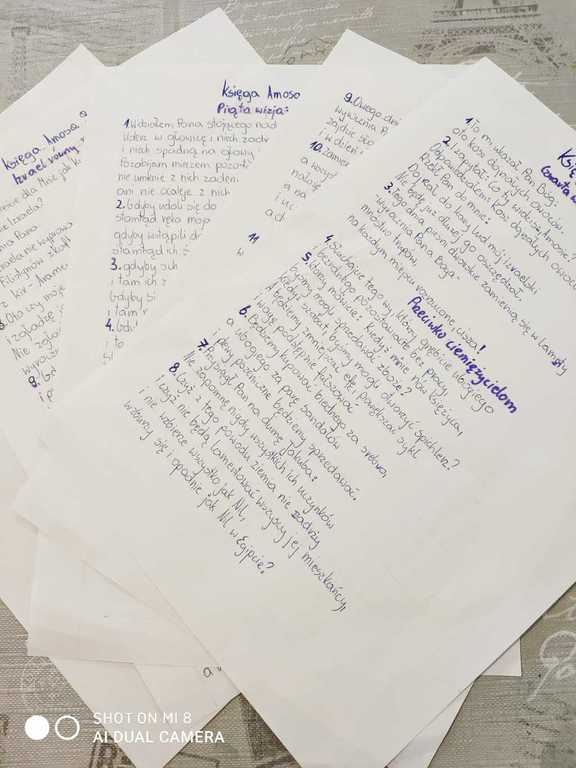 Księga Amosa
Izrael równy
Księga Amosa
Piąta wizja:
1. Widziałem Pana stojącego nad
Uderz w głowicę i niech zadrż
i niech spadną na głowy
Pozabijam mieczem pozost
nie umknie z nich żaden
ani nie ocaleje z nich
2. Gdyby udali się do
stamtąd ręka moja
gdyby wstąpili do
stamtąd ich ś
3. gdyby sch
i tam ich z
Gdyby si
i tam r
4. Gdy
9. Owego dni
wyrocznia P
zajdzie sło
i w dzień
10. Zamien
a wszys
nałożę
a na
i uc
a d
11
1. To mi ukazał Pan Bóg:
oto kosz dojrzałych owoców.
2. I zapytał: Co ty widzisz, Amosie?
Odpowiedziałem: Kosz dojrzałych owoców.
Rzekł Pan do mnie:
Dojrzał do kary lud mój izraelski
Nie będę już dłużej go oszczędzał.
3. Tego dnia pieśni dworskie zamienią się w lamenty
wyrocznia Pana Boga.
mnóstwo trupów
na każdym miejscu porzucone, cisza!
Przeciwko ciemiężycielom
4. Słuchajcie tego wy, którzy gnębicie ubogiego
i bezrolnego pozostawiacie bez pracy,
5. którzy mówicie: Kiedyż minie nów księżyca,
byśmy mogli sprzedawać zboże?
Kiedyż szabat, byśmy mogli otworzyć spichlerz?
A będziemy zmniejszać efę, powiększać sykl
i wagę podstępnie fałszować.
6. Będziemy kupować biednego za srebro,
a ubogiego za parę sandałów
i plewy pszeniczne będziemy sprzedawać.
7. Przysiągł Pan na dumę Jakuba:
Nie zapomnę nigdy wszystkich ich uczynków
8. Czyż z tego powodu ziemia nie zadrży
i czyż nie będą lamentować wszyscy jej mieszkańcy,
i nie wzbierze wszystko jak Nil,
wzburzy się i opadnie jak Nil w Egipcie?
SHOT ON MI 8
AI DUAL CAMERA